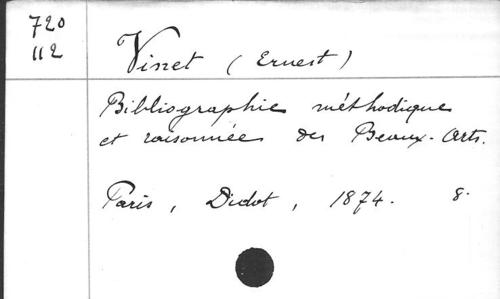 720
112
Vinet (Ernest)
Bibliographie méthodique
et raisonnée des Beaux-Arts.
Paris, Didot, 1874. 8.